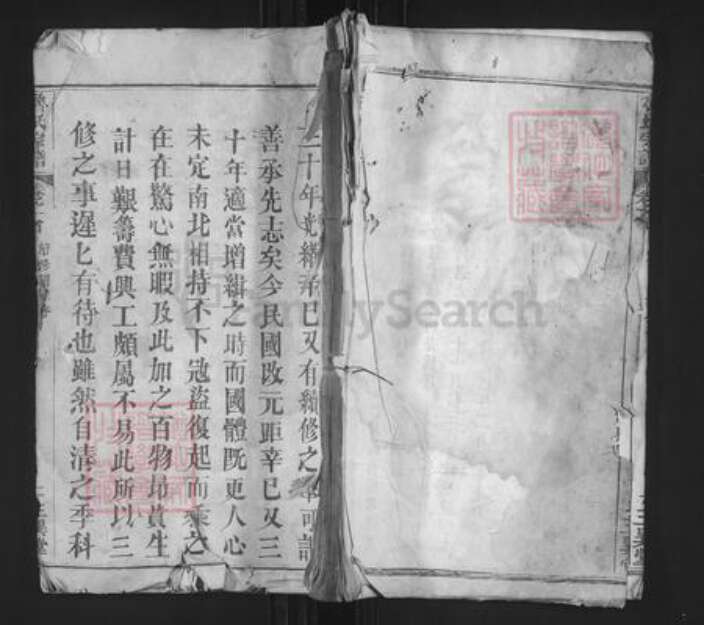 三十年光緒辛巳又有續修之舉可謂
善承先志矣今民國改元距辛巳又三
十年適當增緝之時而國體既更人心
未定南北相持不下寇盜復起而乘之
在在驚心無暇及此加之百物昂貴生
計日艱籌費興工頗屬不易此所以三
修之事遲匕有待也雖然自清之季科
FamilySearch